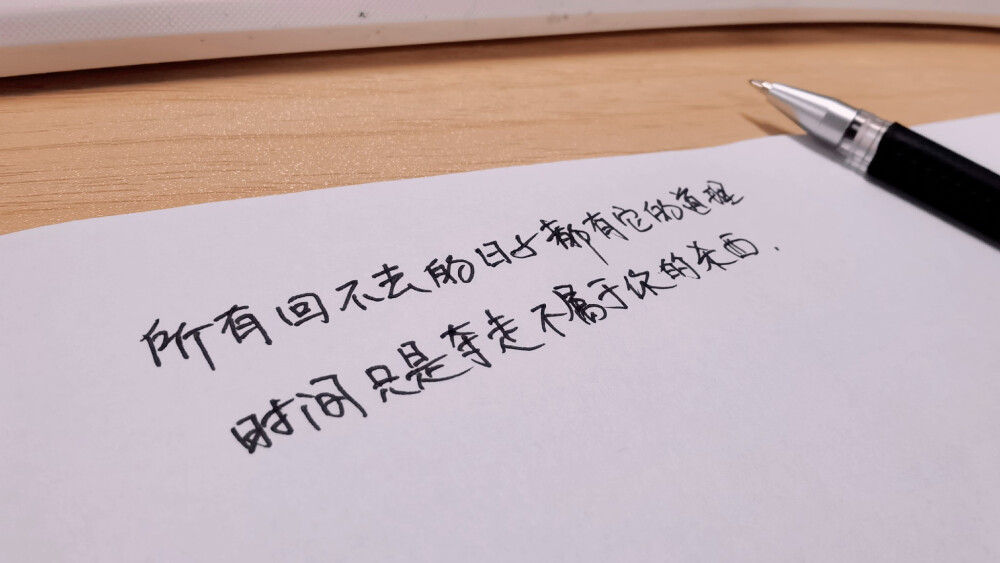 所有回不去的日子都有它的道理
时间只是夺走不属于你的东西.